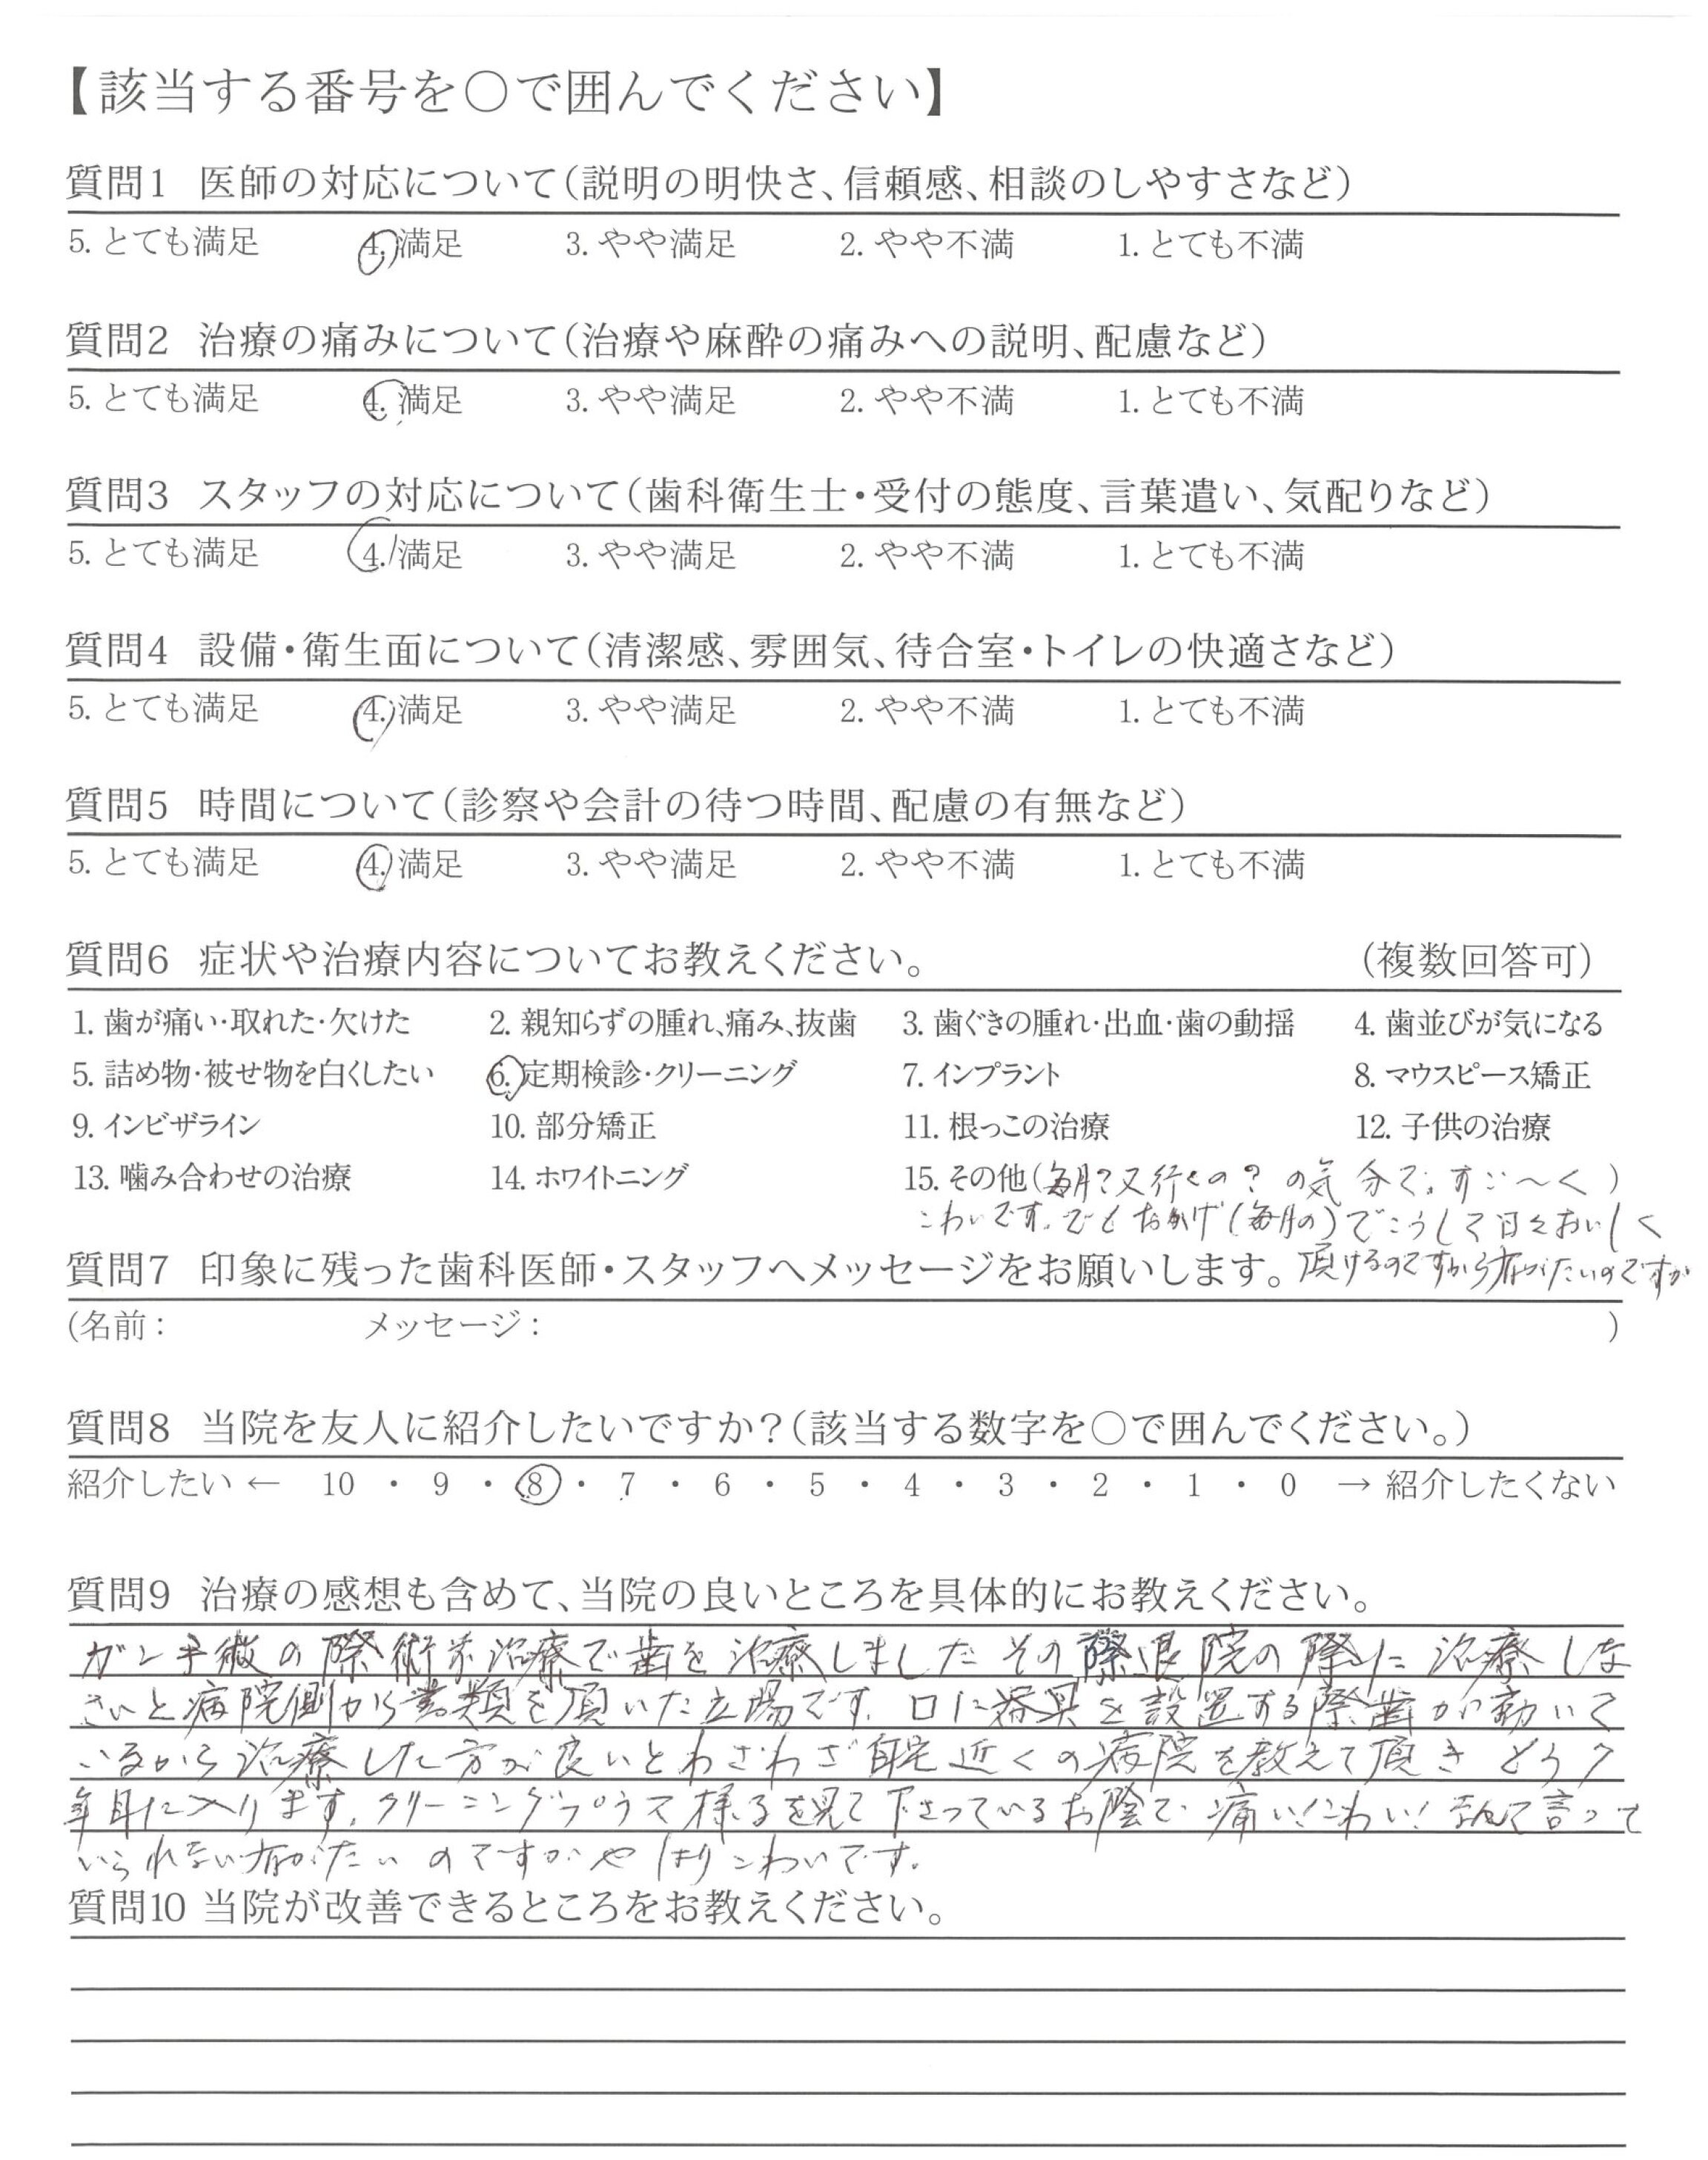 【該当する番号を○で囲んでください】
質問1 医師の対応について(説明の明快さ、信頼感、相談のしやすさなど)
5. とても満足 4. 満足 3. やや満足 2. やや不満 1. とても不満
質問2 治療の痛みについて(治療や麻酔の痛みへの説明、配慮など)
5. とても満足 4. 満足 3. やや満足 2. やや不満 1. とても不満
質問3 スタッフの対応について(歯科衛生士・受付の態度、言葉遣い、気配りなど)
5. とても満足 4. 満足 3. やや満足 2. やや不満 1. とても不満
質問4 設備・衛生面について(清潔感、雰囲気、待合室・トイレの快適さなど)
5. とても満足 4. 満足 3. やや満足 2. やや不満 1. とても不満
質問5 時間について(診察や会計の待つ時間、配慮の有無など)
5. とても満足 4. 満足 3. やや満足 2. やや不満 1. とても不満
質問6 症状や治療内容についてお教えください。 (複数回答可)
1. 歯が痛い・取れた・欠けた 2. 親知らずの腫れ、痛み、抜歯 3. 歯ぐきの腫れ・出血・歯の動揺 4. 歯並びが気になる
5. 詰め物・被せ物を白くしたい 6. 定期検診・クリーニング 7. インプラント 8. マウスピース矯正
9. インビザライン 10. 部分矯正 11. 根っこの治療 12. 子供の治療
13. 噛み合わせの治療 14. ホワイトニング 15. その他(毎月?又行くの?の気分で。すご〜く)
こわいです。でもおかげ(毎月の)でこうして日々おいしく
質問7 印象に残った歯科医師・スタッフへメッセージをお願いします。 頂けるのですから有がたいのですが
(名前: メッセージ: )
質問8 当院を友人に紹介したいですか?(該当する数字を○で囲んでください。)
紹介したい ← 10 ・ 9 ・ 8 ・ 7 ・ 6 ・ 5 ・ 4 ・ 3 ・ 2 ・ 1 ・ 0 → 紹介したくない
質問9 治療の感想も含めて、当院の良いところを具体的にお教えください。
ガン手術の際 治療で歯を治療しましたその際退院の際に治療しな
さいと病院側から書類を頂いた立場です。口に器具を設置する際歯が動いて
いるから治療した方が良いとわざわざ自宅近くの病院を教えて頂き
年目に入ります。クリーニングプラス様子を見て下さっているお陰で痛い!こわい!なんて言って
いられない有がたいのですがやはりこわいです。
質問10 当院が改善できるところをお教えください。